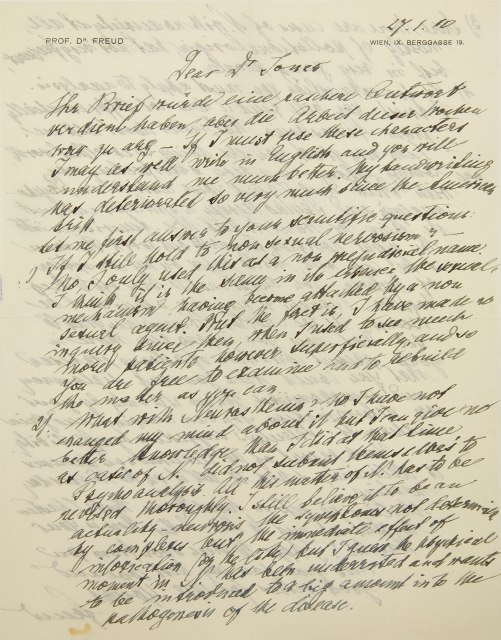 27.1.10
PROF. Dr FREUD
WIEN, IX. BERGGASSE 19.
Dear Dr Jones
Ihr Brief würde eine raschere Antwort
verdient haben, aber die Arbeit dieser Wochen
war zu arg — If I must use these characters
I may as well write in English and you will
understand me much better. My handwriting
has deteriorated so very much since the American
trip.
Let me first answer to your scientific questions:
1) If I still hold to "non sexual nervosism"?
No I only used this as a non prejudicional name.
I think it is the same in its the sexual
mechanism having become attached by a non
sexual agent. But the fact is, I have made no
inquiry since then, when I used to see much
more patients however superficially, and so
you are free to examine and to rebuild
the matter as you can
2) What with Neurasthenia? No I have not
changed my mind about it but I can give no
better knowledge than I did at that time
as cases of N. did not submit themselves to
Psychoanalysis. All this matter of N. has to be
revised thoroughly. I still believe it to be an
actuality-neurosis the symptoms not determined
by complexes but the immediate effect of
intoxication but I guess the psychical
moment in N. has been underrated and wants
to be introduced to a big amount into the
pathogenesis of the disease.